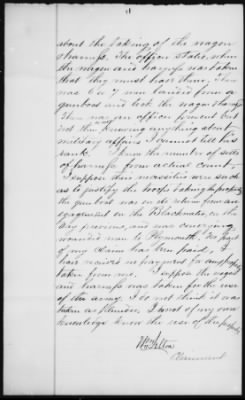 about the taking of the wagon
& harness. The officer states, when
the wagon and harness was taken
that they must have them, there
was 6 or 7 men landed from a
gunboat and took the wagon & harness
There was an officer present but
not then knowing anything about
military affairs I cannot tell his
rank. I know the number of sets
of harness from actual count.
I suppose their necessities were such
as to justify the troops taking the property
the gunboat was on its return from an
engagement on the Blackwater, on the
day previous, and was conveying
wounded men to Plymouth. No part
of my claim has been paid, I
have received no payment for any property
taken from me. I suppose the wagon
and harness was taken for the use
of the army, I do not think it was
taken as plunder, I must of my own
knowledge know the use of the property
Claimant